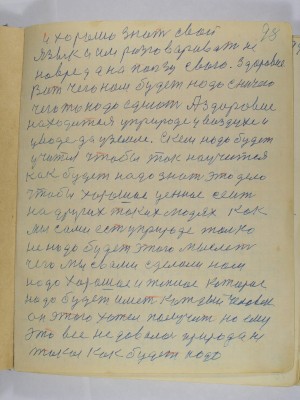 98
и хорошо знат свой
язык и им разговариват не
повред а на ползу свою. Здоровие
Вот чего нам будет надо
что то надо А здоровие
находится у природе у воздухе и
у воде да у земле. С кем надо будет
учится чтобы так научится
как будет надо знат это дело
чтобы хорошое ценное
на других таких людях как
мы сами ест у природе только
не надо будет этого мыслет
чего мы с вами сделали нам
надо хорошое и теплое которое
надо будет имет каждый человек
он этого хотел получит но ему
это все не довала природа
такая как будет надо